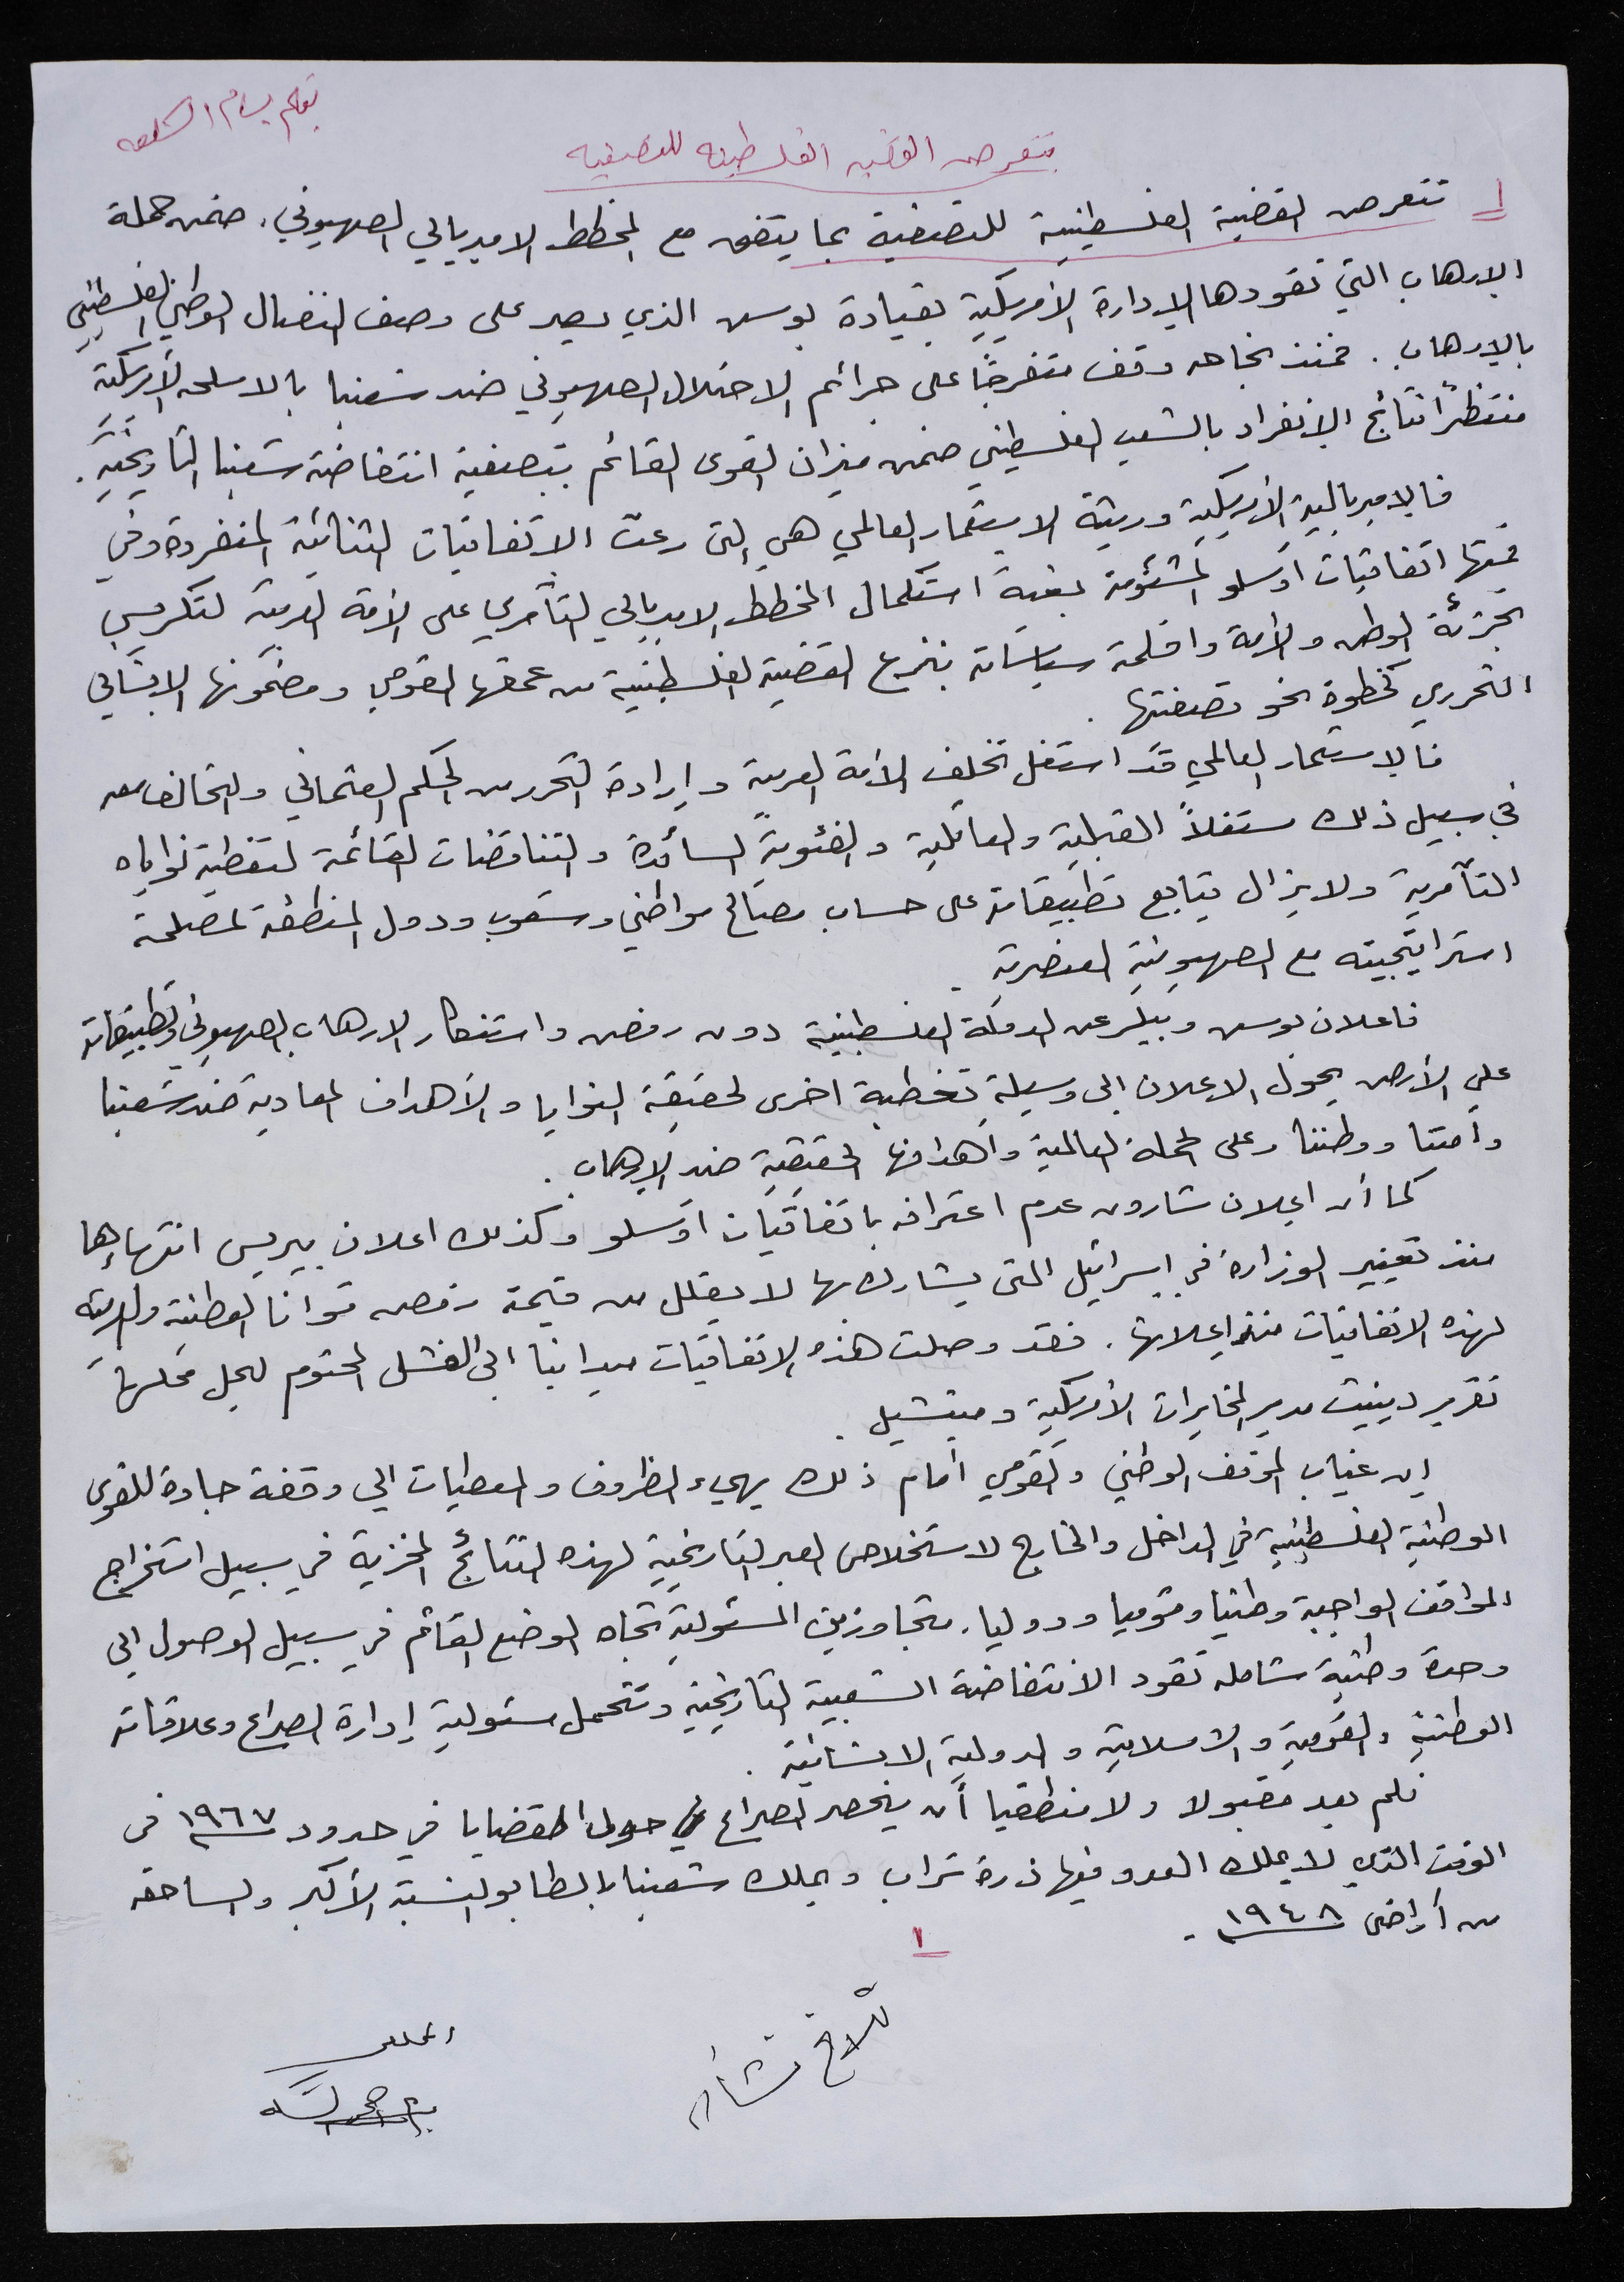 بقلم بسام الشكعه
تتعرض القضيه الفلسطينيه للتصفيه
١ تتعرض القضية الفلسطينية للتصفية بما يتفق مع المخطط الامبريالي الصهيوني، ضمن حملة
الإرهاب التي تقودها الإدارة الأمريكية بقيادة بوش الذي يصر على وصف النضال الوطني الفلسطيني
بالإرهاب. فمنذ نجاحه وقف متفرجًا على جرائم الاحتلال الصهيوني ضد شعبنا بالاسلحه الأمريكية
منتظرًا نتائج الإنفراد بالشعب الفلسطيني ضمن ميزان القوى القائم بتصفية انتفاضة شعبنا التأريخية.
فالإمبريالية الأمريكية وريثة الاستعمار العالمي هي التى رعت الاتفاقيات الثنائية المنفردة وفي
قمتها اتفاقيات اوسلو المشئومة بغية استكمال المخطط الامبريالي التآمري على الأمة العربية لتكريس
تجزئة الوطن والأمة واقلمة سياساته بنزع القضية الفلسطينية من عمقها القومي ومضمونها الانساني
التحرري كخطوة نحو تصفيتها.
فالإستعمار العالمي قد استغل تخلف الأمة العربية وإرادة التحرر من الحكم العثماني والتحالف معه
في سبيل ذلك مستغلاً القبلية والعائلية والفئوية السائدة والتناقضات القائمة لتغطية نواياه
التآمرية ولا يزال يتابع تطبيقاته على حساب مصالح مواطني وشعوب ودول المنطقة لمصلحة
استراتيجيته مع الصهيونية العنصرية.
فاعلان بوش وبيلر عن الدولة الفلسطينية دون رفض واستنكار الارهاب الصهيوني وتطبيقاته
على الأرض يحول الاعلان إلى وسيلة تغطية اخرى لحقيقة النوايا والأهداف المعادية ضد شعبنا
وامتنا ووطننا وعلى الحملة العالمية وأهدافها الحقيقية ضد الإرهاب.
كما أن اعلان شارون عدم اعترافه باتفاقيات اوسلو وكذلك اعلان بيريس انتهاءها
منذ تغيير الوزارة في إسرائيل التى يشارك بها لا يقلل من قيمة رفض قوانا الوطنية والعربية
لهذه الاتفاقيات منذ إعلانها. فقد وصلت هذه الإتفاقيات ميدانيا الى الفشل المحتوم ليحل محلها
تقرير دينيت مدير المخابرات الأمريكية وميتشيل.
إن غياب الموقف الوطني والقومي أمام ذلك يهيء الظروف والمعطيات الى وقفة جادة للقوى
الوطنية الفلسطينية في الداخل والخارج لاستخلاص العبر التاريخية لهذه النتائج المخزية في سبيل استخراج
المواقف الواجبة وطنيا وقوميا ودوليا، متجاوزين المسئولية تجاه الوضع القائم في سبيل الوصول الى
وحدة وطنية شامله تقود الانتفاضة الشعبية التاريخية وتتحمل مسئولية إدارة الصراع وعلاقاته
الوطنية والقومية والاسلامية والدولية الانسانية.
فلم يعد مقبولا ولا منطقيا أن ينحصر الصراع في حول القضايا في حدود ١٩٦٧ في
الوقت الذي لا يملك العدو فيها ذرة تراب ويملك شعبنا بالطابو النسبة الأكبر والساحقه
من أراضي ١٩٤٨.
١